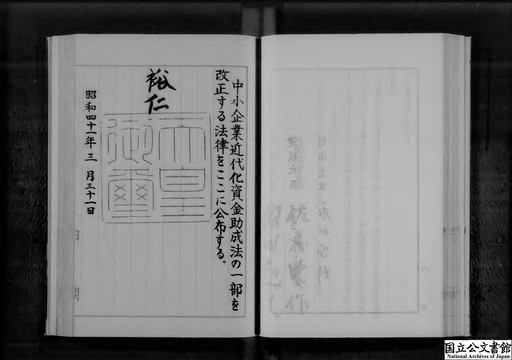 中小企業近代化資金助成法の一部を
改正する法律をここに公布する。
裕仁
天皇
御璽
昭和四十一年三月三十一日
国立公文書館
National Archives of Japan